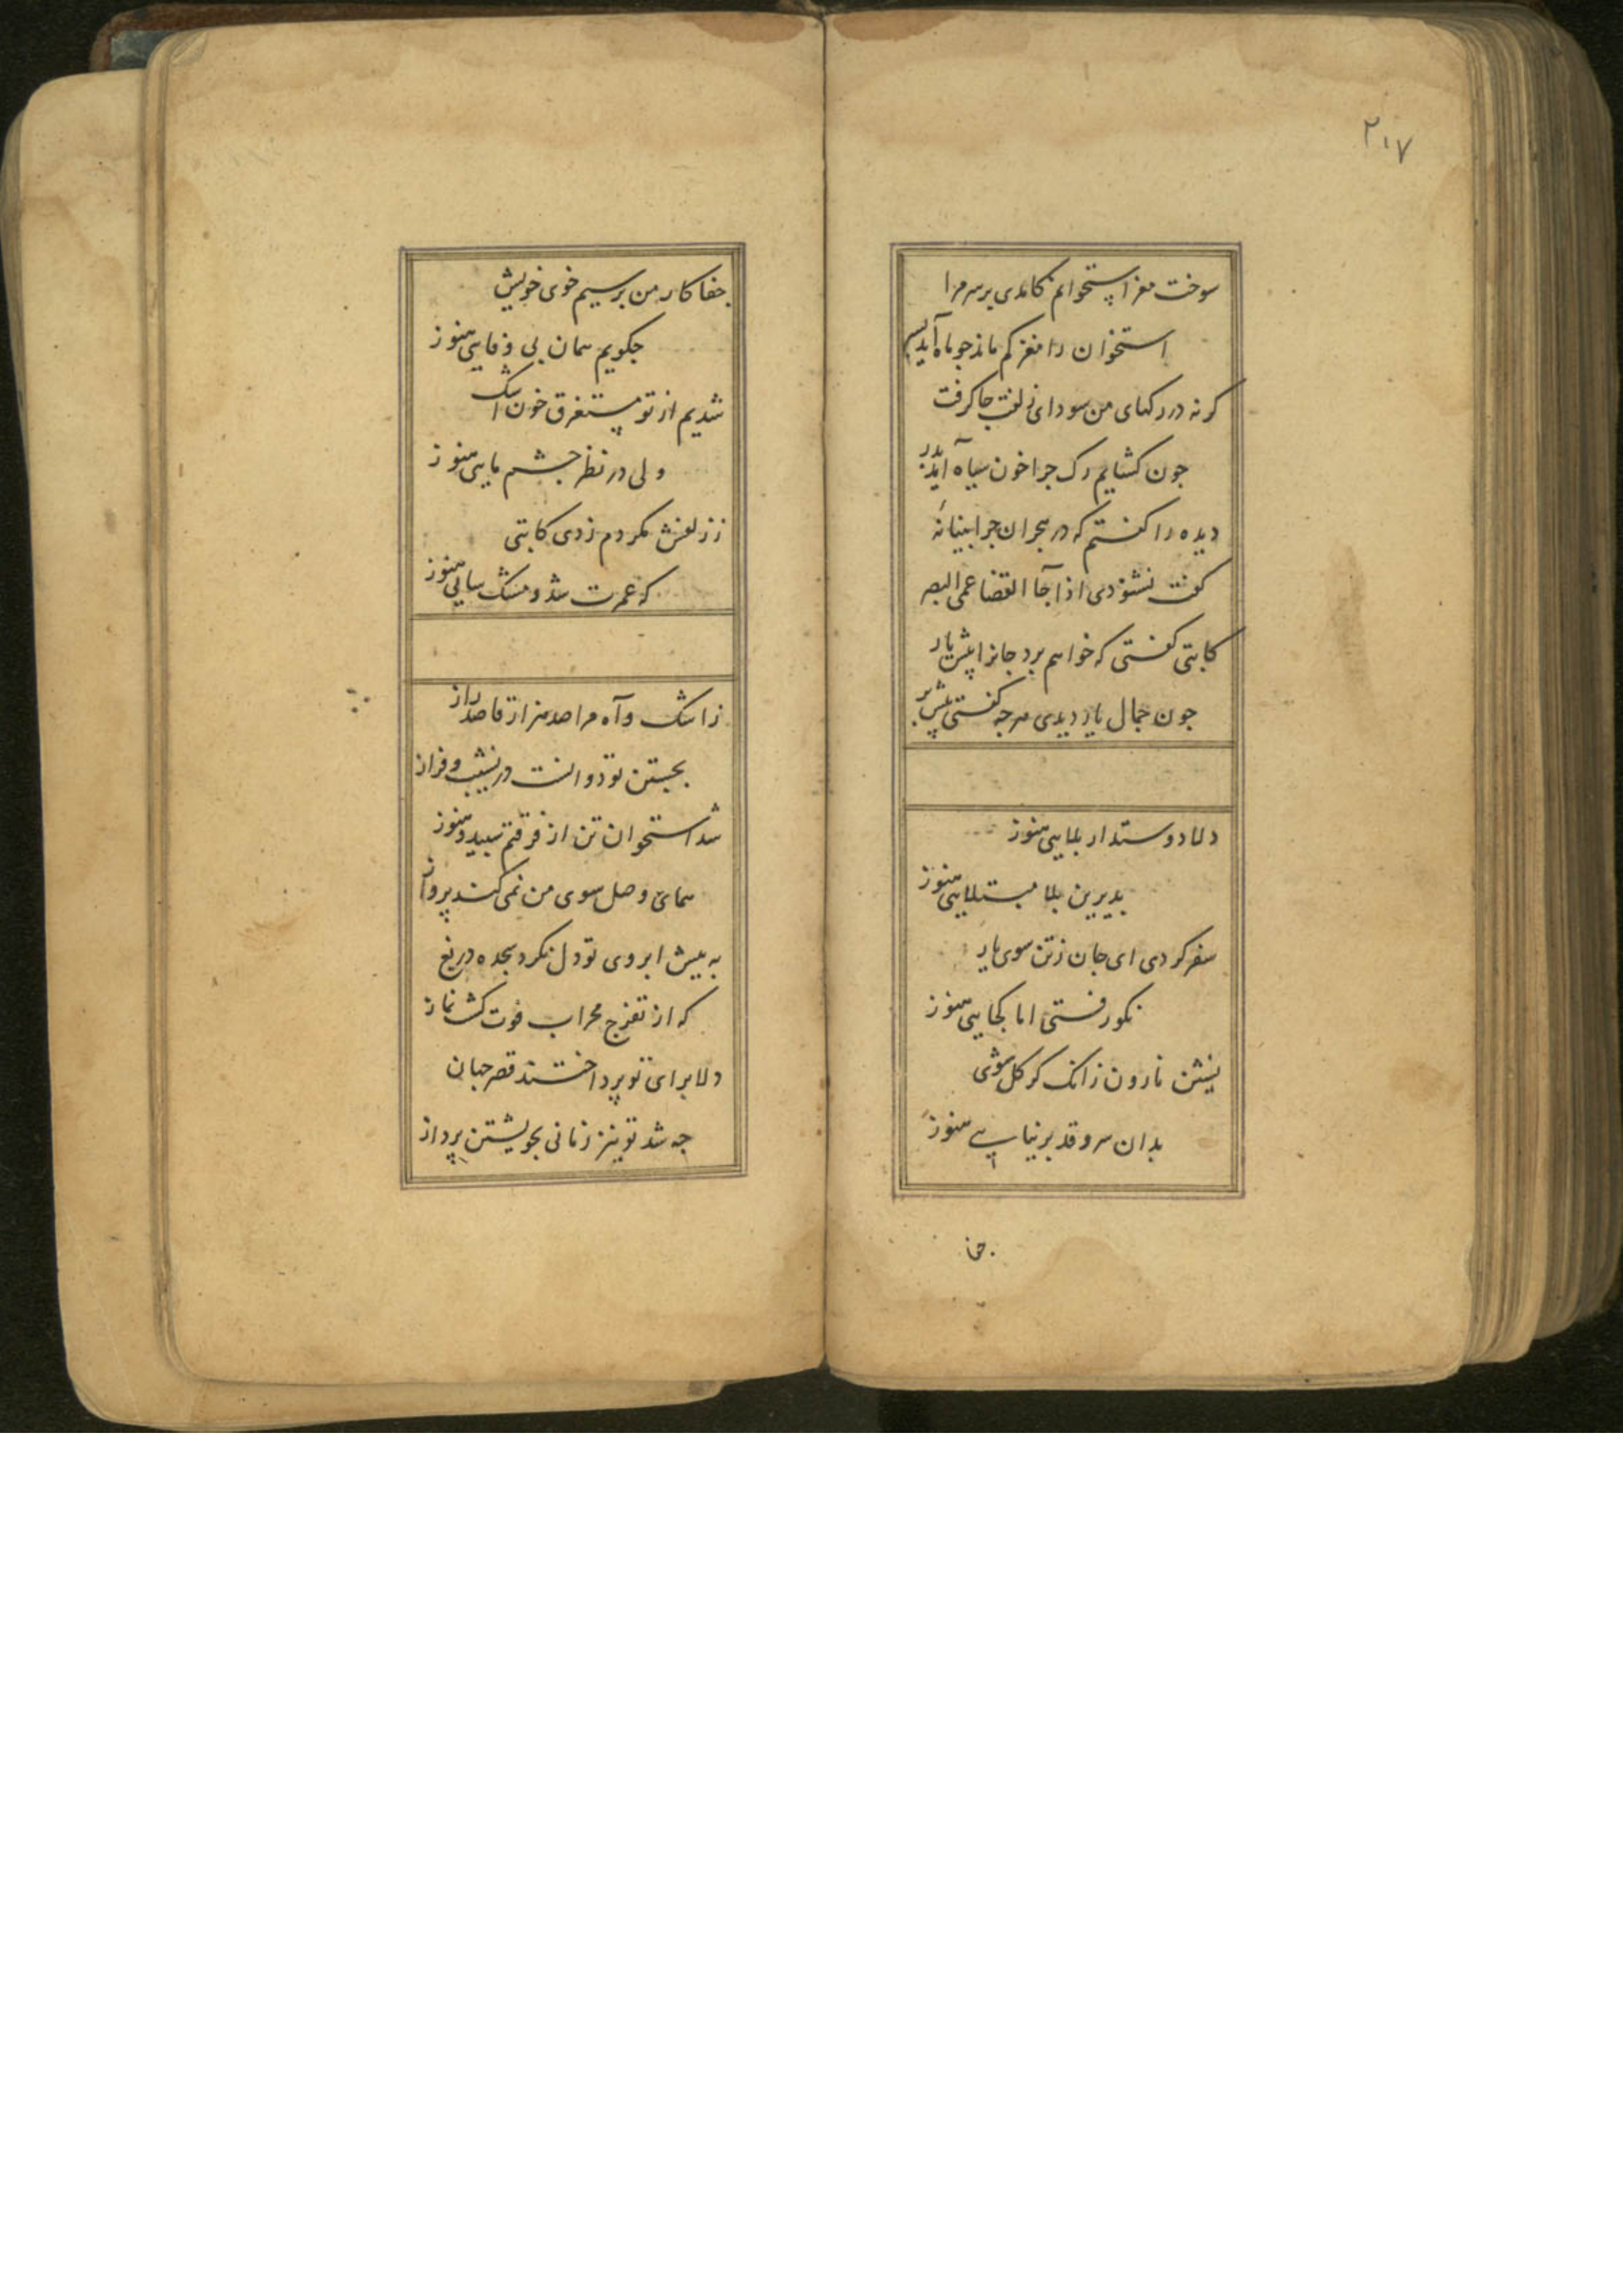 ۲۱۷
سوخت مغز استخوانم کامدی بر سر مرا
استخوان را مغز کم ماند جو ماه آید بسر
کر نه در رکهای من سودای زلفت جا کرفت
جون کشایم رک جرا خون سیاه آید بدر
دیده را کفتم که در هجران جرا بینا نهٔ
کفت نشنودی اذا جآ القضا عمی البصر
کاتبی کفتی که خواهم برد جانرا پیش یار
جون جمال یار دیدی هر جه کفتی پیش بر
دلا دوستدار بلایی هنوز
بدیرین بلا مبتلایی هنوز
سفر کردی ای جان ز تن سوی یار
نکو رفتی اما کجایی هنوز
نارون زانک کر کل شوی
بدان سرو قد بر نیایی هنوز
جفا
جفا کار من بر سیم خوی خویش
جکویم همان بی وفایی هنوز
شدیم از تو مستغرق خون اشک
ولی در نظر جشم مایی هنوز
ز زلفش مکر دم زدی کاتبی
که عمرت شد و مشک سایی هنوز
ز اشک و آه مرا صد هزار قاصد راز
بجستن تو دوانست در نشیب و فراز
شد استخوان تن از فرقتم سبید و هنوز
همای وصل سوی من نمی کند پرواز
به پیش ابروی تو دل نکرد سجده دریغ
که از تفرج محراب فوت کشت نماز
دلا برای تو پرداختند قصر جهان
جه شد تو نیز زمانی بخویشتن پرداز